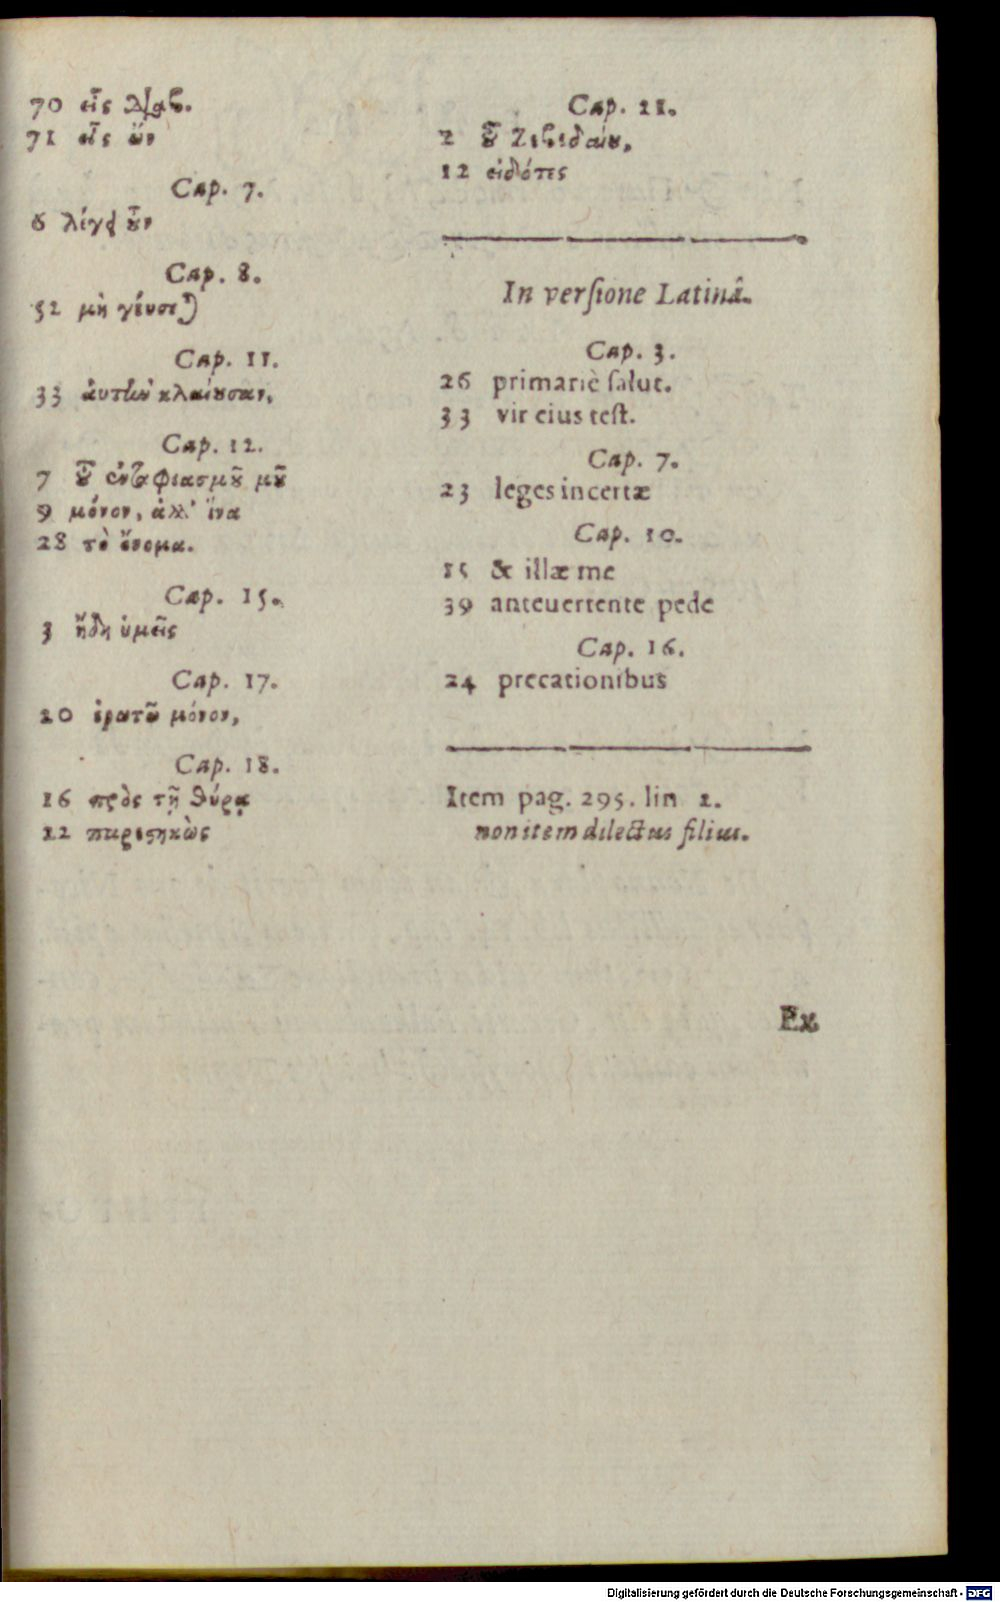 70 εἷς διάβ.
71 εἷς ὢν
Cap. 7.
6 λέγει οὖν
Cap. 8.
52 μὴ γεύσεται
Cap. 11.
33 αὐτὴν κλαίουσαν,
Cap. 12.
7 τοῦ ἐνταφιασμοῦ μοῦ
9 μόνον, ἀλλ' ἵνα
28 τὸ ὄνομα.
Cap. 15.
3 ἤδη ὑμεῖς
Cap. 17.
20 ἐρωτῶ μόνον,
Cap. 18.
16 πρὸς τῇ θύρᾳ
22 παρεστηκὼς
Cap. 21.
2 τοῦ Ζεβεδαίου,
12 εἰδότες
In verſione Latinâ.
Cap. 3.
26 primariè ſalut.
33 vir eius teſt.
Cap. 7.
23 leges incertæ
Cap. 10.
15 & illæ me
39 anteuertente pede
Cap. 16.
24 precationibus
Item pag. 295. lin 2.
non item dilectus filius.
Ex
Digitalisierung gefördert durch die Deutsche Forschungsgemeinschaft - DFG